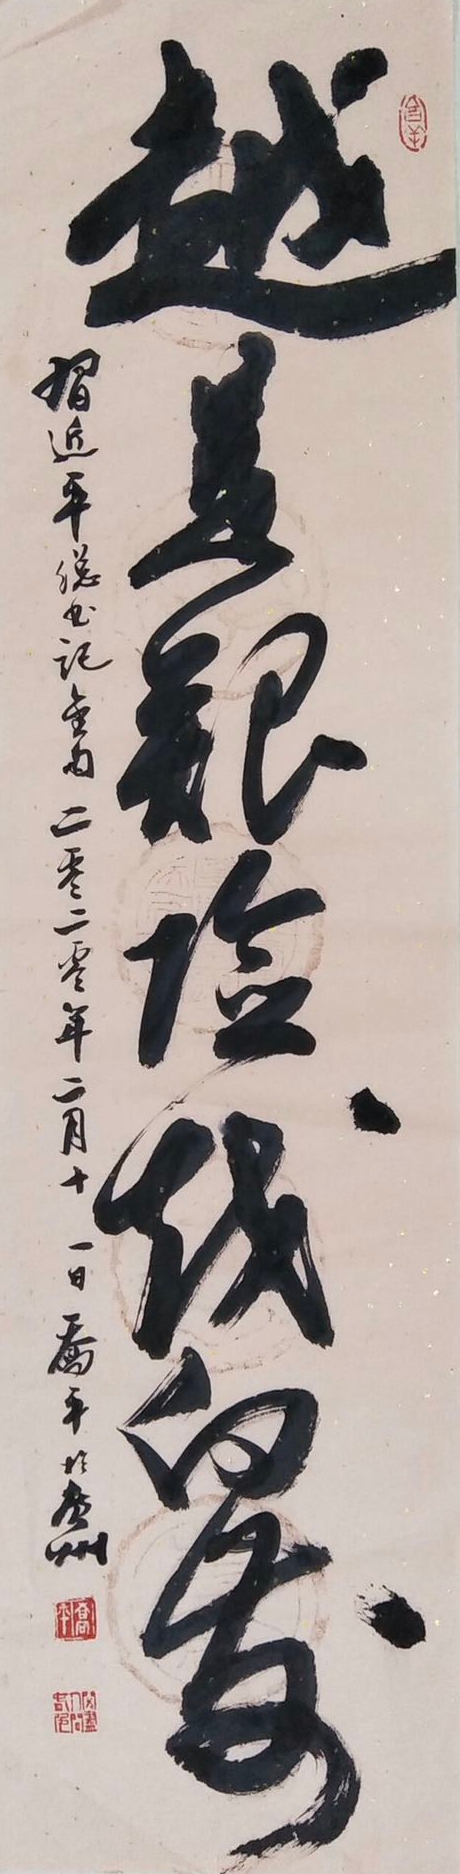 越是艰险越向前
习近平总书记金句 二零二零年二月十一日 乔平于广州